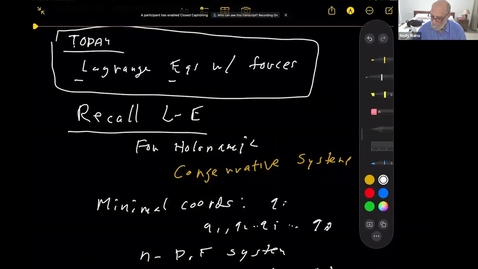 A participant has enabled Closed Captioning
Who can see this transcript? Recording On
TODAY
Lagrange Eqs w/ forces
Recall L-E
For Holonomic
Conservative Systems
Minimal coords: qi
q1, q2 ... qi ... qn
n- D.F system